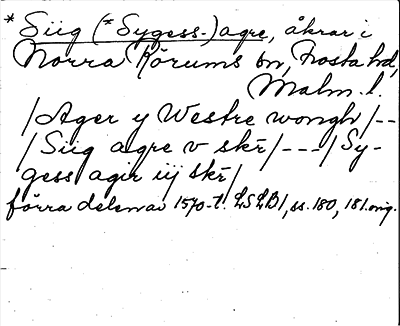 * Siig (*Sygess-)agre, åkrar i
Norra Rörums sn, Frosta hd,
Malm. l.
/Ager y Westre wongh/--
/Siig agre v skr̄/---/Sy-
gess agir iij skr̄/
förra delen av 1570-t. LSLB1, ss. 180, 181 orig.